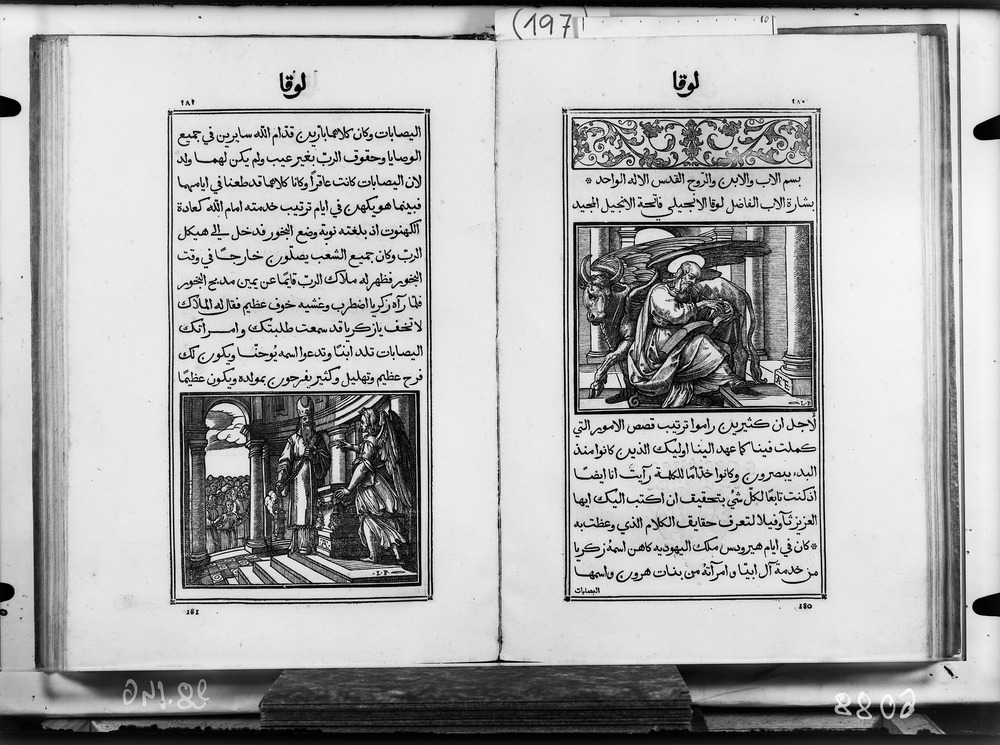 (197)
10
لوقا
٢٨٠
بسم الاب والابن والروح القدس الاله الواحد *
بشارة الاب الفاضل لوقا الانجيلي فاتحة الانجيل المجيد
L.P.
لاجل ان كثيرين راموا ترتيب قصص الامور التي
كملت فينا كما عهد الينا اوليك الذين كانوا منذ
البدء يبصرون وكانوا خدّامًا للكلمة رآيت انا ايضًا
اذ كنت تابعًا لكلّ شيٍ بتحقيف ان اكتب اليك ايها
العزيز ثآوفيلا لتعرف حقايف الكلام الذي وعظت به
* كان في ايام هيرودس ملك اليهوديه كاهن اسمهُ زكريا
من خدمة آل ابيّا وامرآتهُ من بنات هرون واسمها
اليصابات
180
لوقا
٢٨١
اليصابات وكان كلاهما بارّين قدّام الله سايرين في جميع
الوصايا وحقوق الربّ بغير عيب ولم يكن لهما ولد
لان اليصابات كانت عاقرًا وكانا كلاهما قد طعنا في ايامهما
فبينما هو يكهن في ايام ترتيب خدمته امام الله كعادة
الكهنوت اذ بلغته نوبة وضع البخور فدخل الي هيكل
الربّ وكان جميع الشعب يصلّون خارجًا في وقت
البخور فظهر له ملاك الربّ قايمًا عن يمين مذبح البخور
فلمّا رآه زكريا اضطرب وغشيه خوف عظيم فقال له الملاك
لا تخف يا زكريا قد سمعت طلبتك وامراتك
اليصابات تلد ابنًا وتدعوا اسمه يُوحنّا ويكون لك
فرح عظيم وتهليل وكثير يفرحون بمولده ويكون عظيمًا
L.P.
181